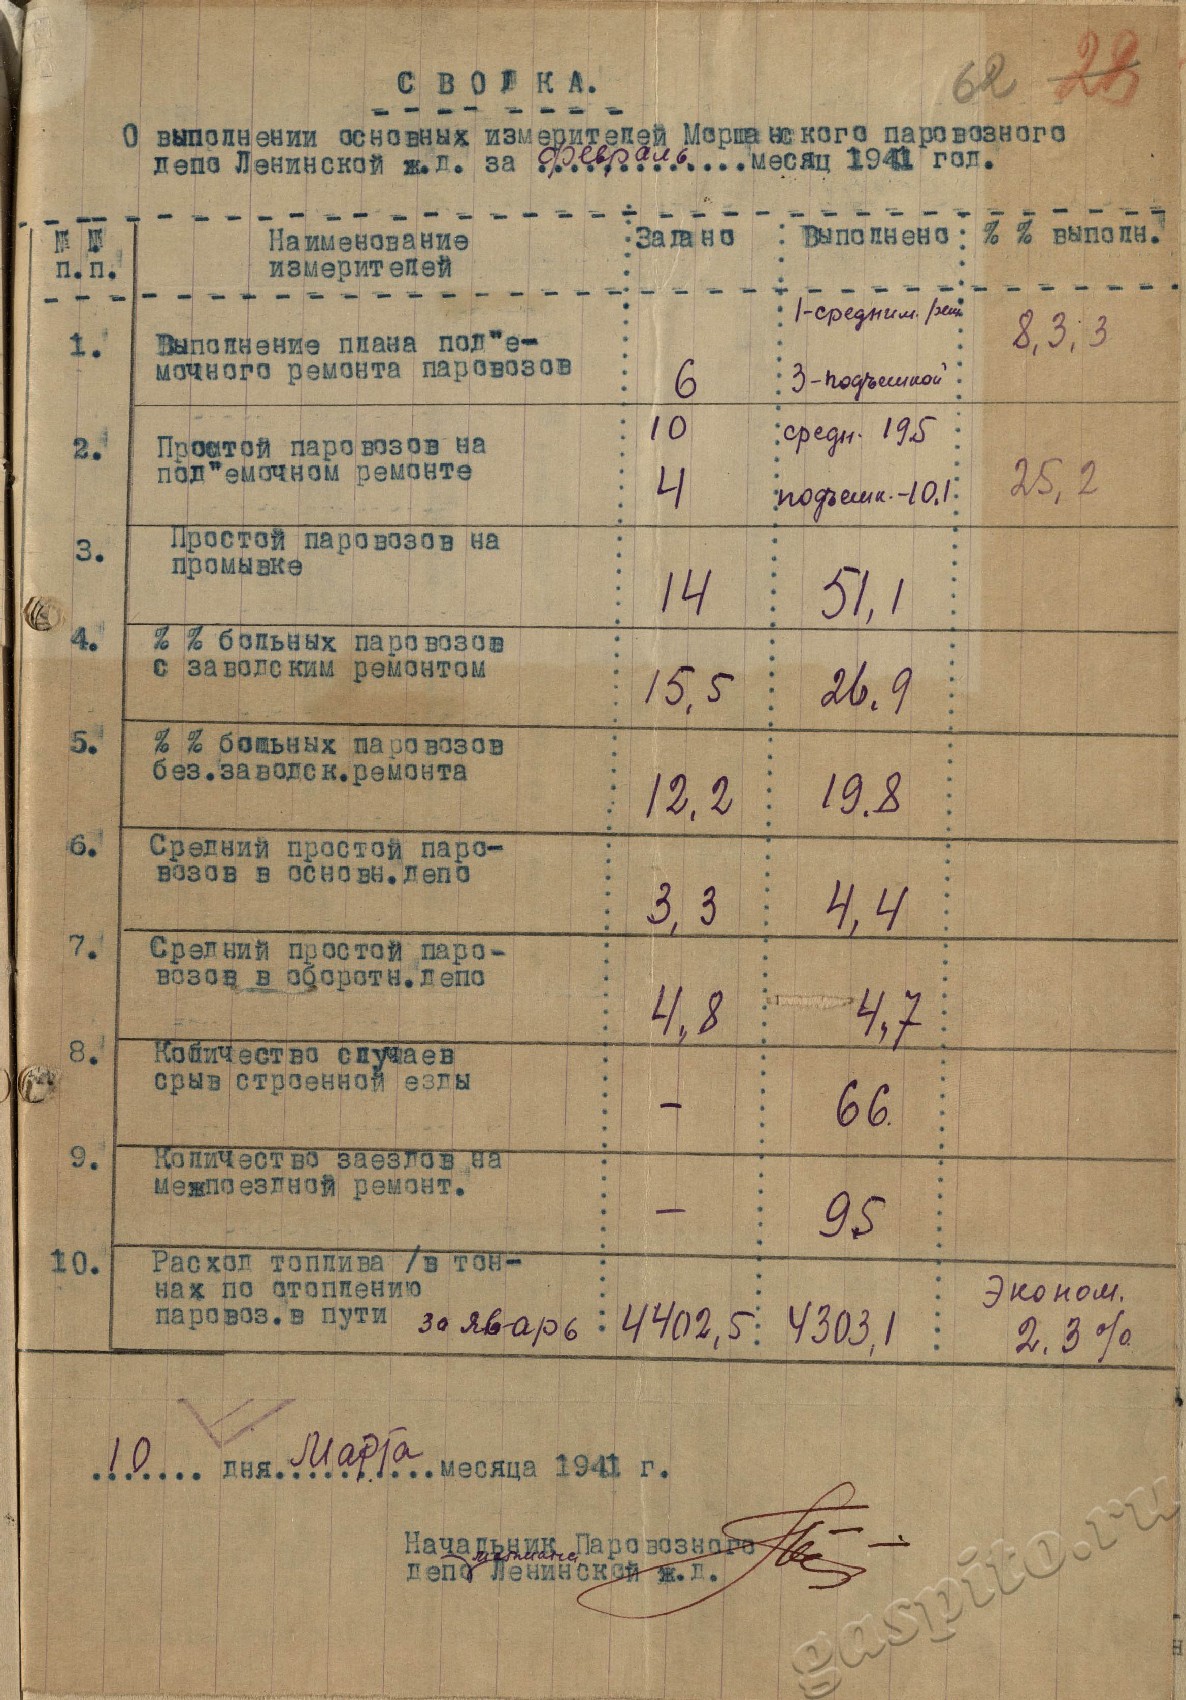 62 28
СВОДКА.
О выполнении основных измерителей Моршанского паровозного
депо Ленинской ж.д. за февраль месяц 1941 год.
№ № Наименование Задано Выполнено % % выполн.
п.п. измерителей
1-средним. рем
1. Выполнение плана под"е- 8,3,3
мочного ремонта паровозов 6 3-подъемкой
2. Простой паровозов на 10 средн. 19.5
под"емочном ремонте 4 подъемк.-10.1 25,2
3. Простой паровозов на
промывке 14 51,1
4. % % больных паровозов
с заводским ремонтом 15,5 26.9
5. % % больных паровозов
без.заводск.ремонта 12.2 19.8
6. Средний простой паро-
возов в основн.депо 3,3 4,4
7. Средний простой паро-
возов в оборотн.депо 4,8 4,7
8. Количество случаев
срыв строенной езды - 66.
9. Количество заездов на
межпоездной ремонт. - 95
10. Расход топлива /в тон-
нах по отоплению Эконом.
паровоз.в пути за январь 4402,5 4303,1 2.3%
10 дня Марта месяца 1941 г.
Начальник Паровозного
депо Ленинской ж.д.
gaspito.ru